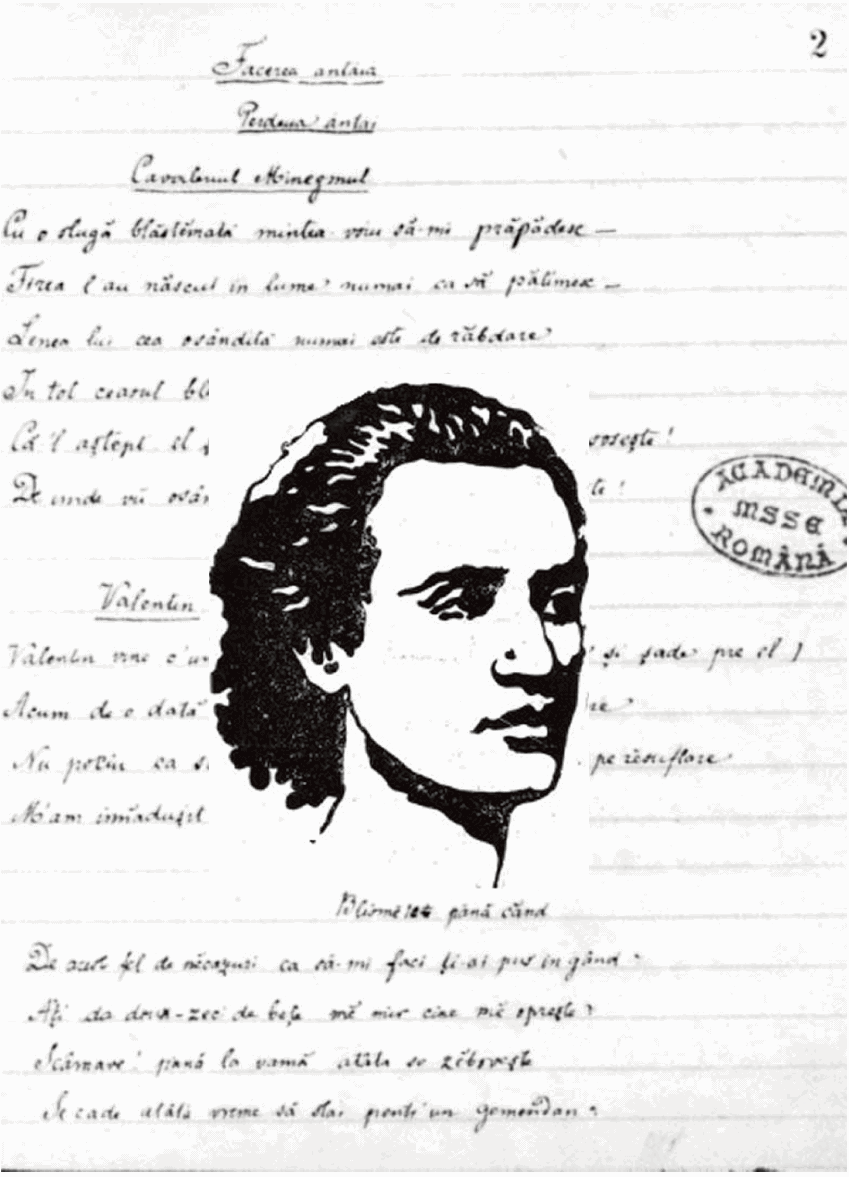 2
Facerea antâia
Perdeua antai
Cavalerul Minegmul
Cu o slugă blăstĕmată mintea voiu să-mi prăpădesc —
Firea l'au născut in lume numai ca să pătimesc —
Lenea lui cea osândită numai este de răbdare
In tot ceasul
Că'l aştept el soseşte!
De unde vii
ACADEMIA
MSSE
ROMÂNĂ
Valentin
Valentin vine c'un şi şade pre el)
Acum de o dată
Nu potiu ca s pe rĕsuflare
M'am innăduşit
până când
De acest fel de nĕcazuri ca să-mi faci ţi-ai pus in gând?
Aţi da doua-zeci de beţe mĕ mir cine mĕ opreşte?
Scârnave! până la vamă atâta se zĕboveşte
Se cade atâta vreme să stai pentr'un gemendan?